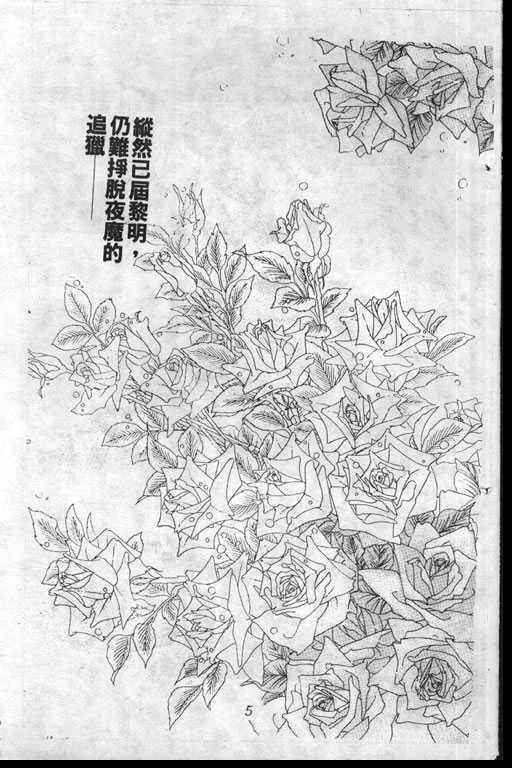 縱然已屆黎明，
仍難掙脫夜魔的
追獵——
5